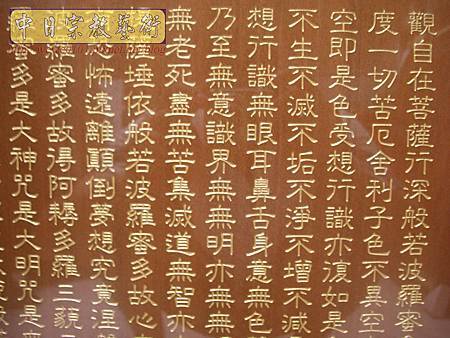 中日宗教藝術
觀自在菩薩行深般若波羅蜜
度一切苦厄舍利子色不異空
空即是色受想行識亦復如是
不生不滅不垢不淨不增不減
想行識無眼耳鼻舌身意無色
乃至無意識界無無明亦無無
無老死盡無苦集滅道無智亦
薩埵依般若波羅蜜多故心
恐怖遠離顛倒夢想究竟涅
羅蜜多故得阿耨多羅三藐
多是大神咒是大明咒是